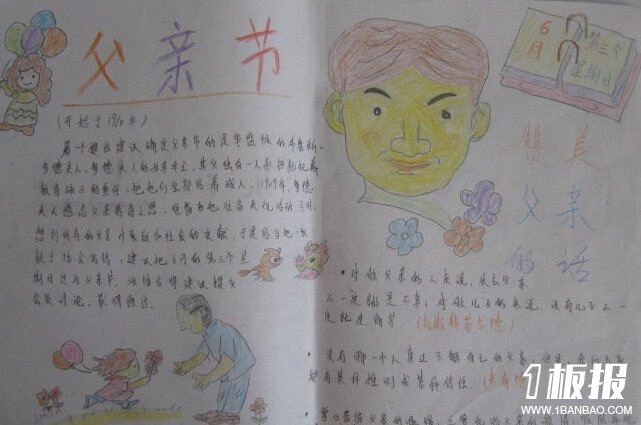 父亲节
(开始于1910年)
第一个提出建议确定父亲节的是华盛顿的布鲁斯·
多德夫人,多德夫人的母亲早亡,其父独自一人承担起抚养
教育孩子的重任,把他们全部培养成人。1909年,多德
夫人感念父亲养育之恩,准备为他准备庆祝活动,同时,
想到所有的父亲对家庭和社会的贡献,于是给当地一
教士协会写信,建议把6月的第三个星
期日定为父亲节。该协会将建议提交
会员讨论,获得通过。
6月
第三个
星期日
赞美
父亲
的话
·对做父亲的人来说,失去父亲
不一定就是不幸;对做儿子的来说,没有儿子不一
定就是痛苦。
·没有哪一个人真正了解自己的父亲;但是,
都有某种推测或某种信任。
1板报
WWW.1BANBAO.COM